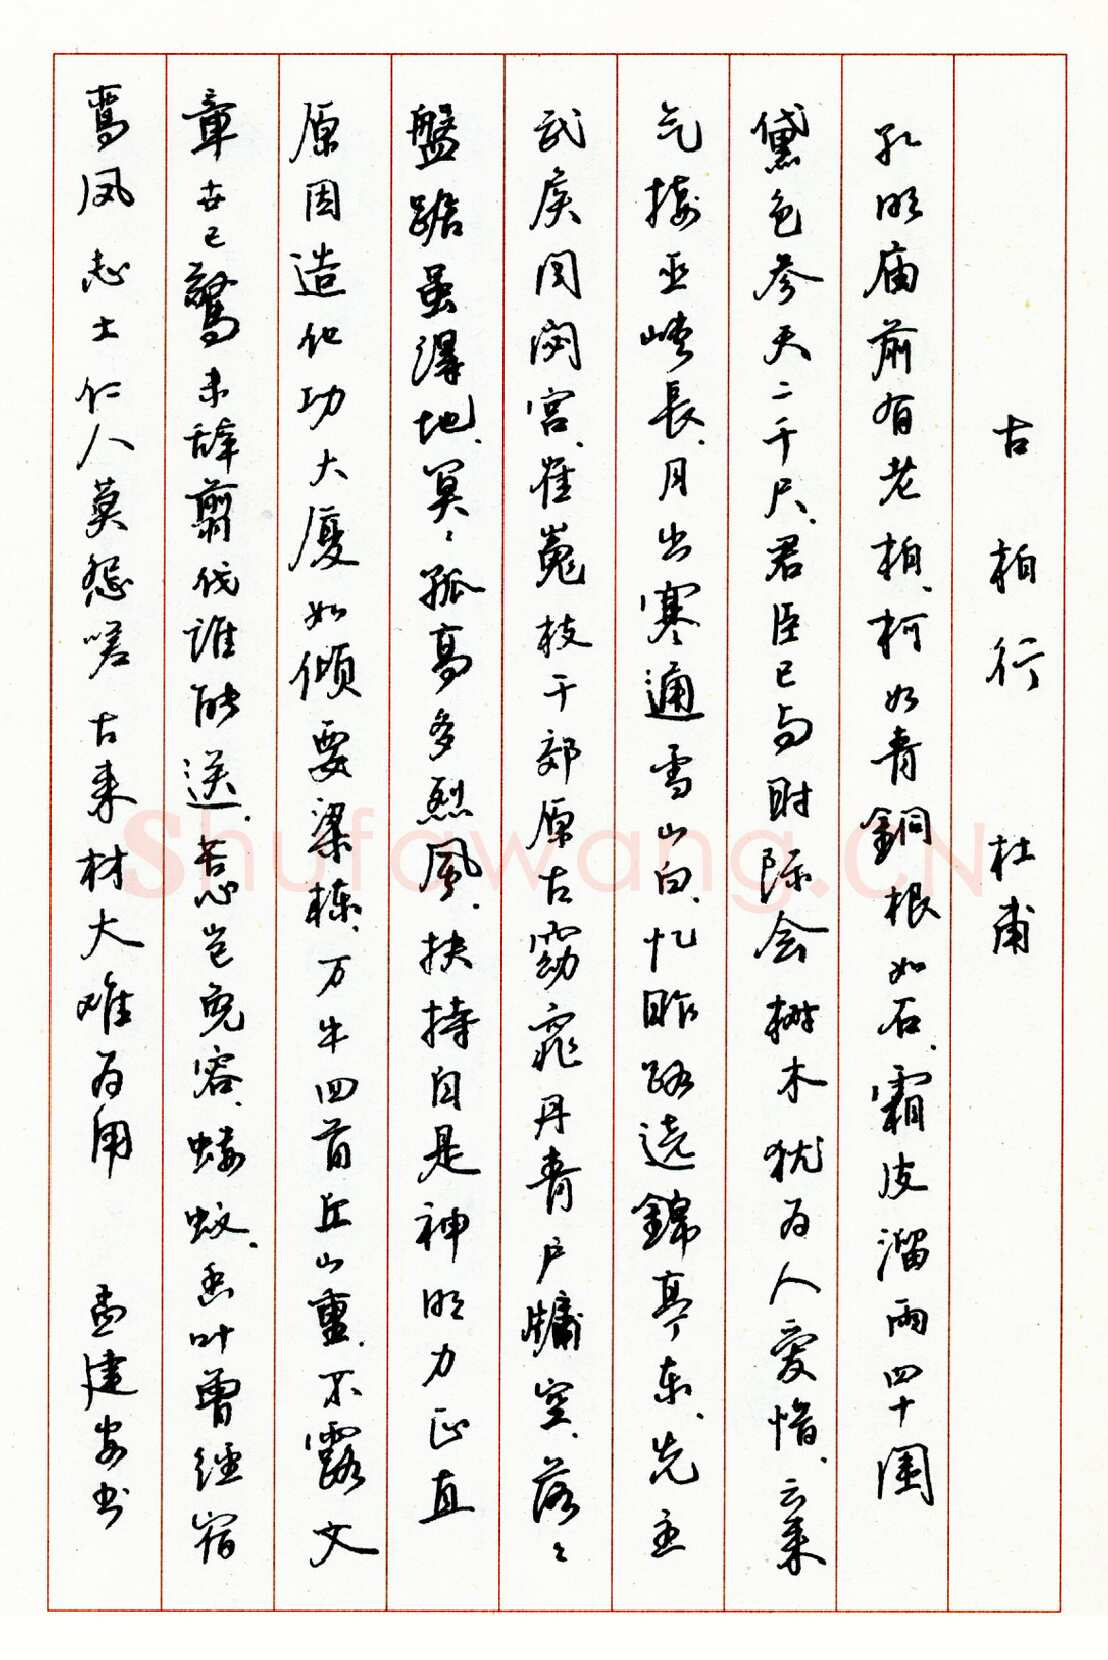 古柏行 杜甫
孔明庙前有老柏、柯如青銅根如石、霜皮溜雨四十围
黛色参天二千尺、君臣已与时际会树木犹为人爱惜、云来
气接巫峡長、月出寒通雪山白、忆昨路遶錦亭东、先主
武侯同閟宫、崔嵬枝干郊原古窈窕丹青户牖空、落々
盤踞虽得地、冥々孤高多烈風、扶持自是神明力正直
原因造化功大厦如倾要梁栋、万牛回首丘山重、不露文
章世已驚未辞翦伐谁能送、苦心岂免容蝼蚁、香叶曾经宿
鸾凤志士仁人莫怨嗟古来材大难为用 孟建安书
Shufawang.CN